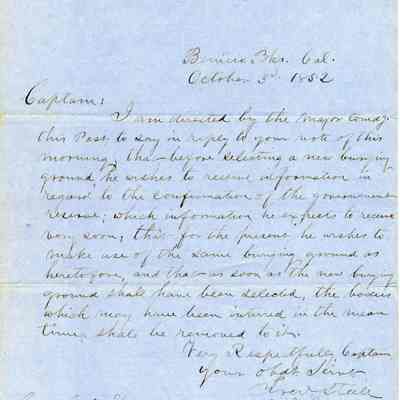 Benicia Bks. Cal.
October 3d. 1852
Captain:
I am directed by the Major Comdg.
this Post to say in reply to your note of this
morning, that before selecting a new burying
ground, he wishes to receive information in
regard to the confirmation of the government
reserve; which information he expects to receive
very soon; that for the present he wishes to
make use of the same burying ground as
heretofore, and that as soon as the new burying
ground shall have been selected, the bodies
which may have been interred in the mean
time, shall be removed to it.
Very Respectfully Captain
your obdt. Servt
Fred Steele